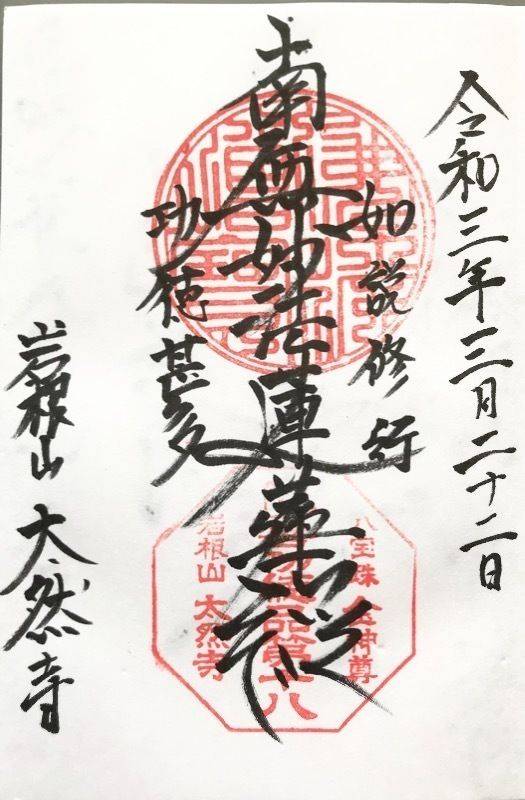 令和三年三月二十二日
如説修行
南無妙法蓮華経
功徳甚多
岩根山 大然寺
品第十八
岩根山 大然寺